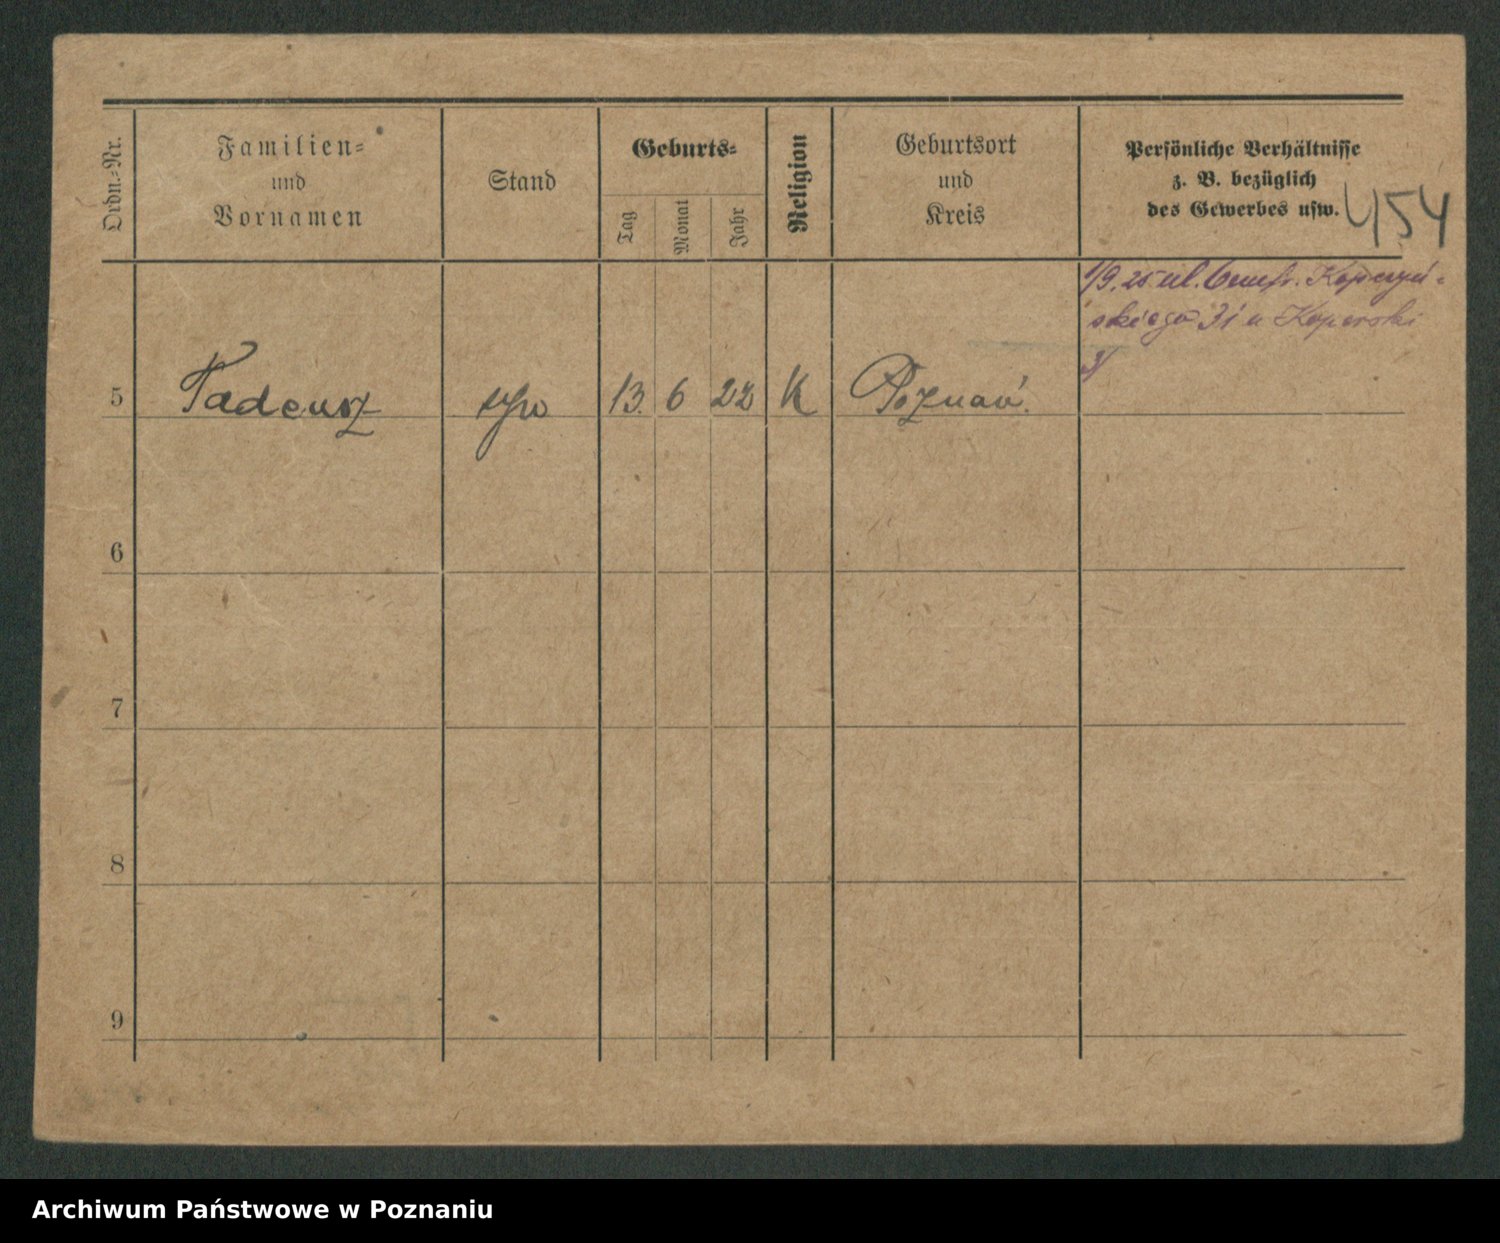 Ordn.-Nr.
Familien-
und
Vornamen
Stand
Geburts-
Tag
Monat
Jahr
Religion
Geburtsort
und
Kreis
Persönliche Verhältnisse
z. B. bezüglich
des Gewerbes usw.
454
1/9. 25 ul.
skiego 31 u Koperski
5 Tadeusz syn 13. 6 22 K Poznań.
6
7
8
9
Archiwum Państwowe w Poznaniu